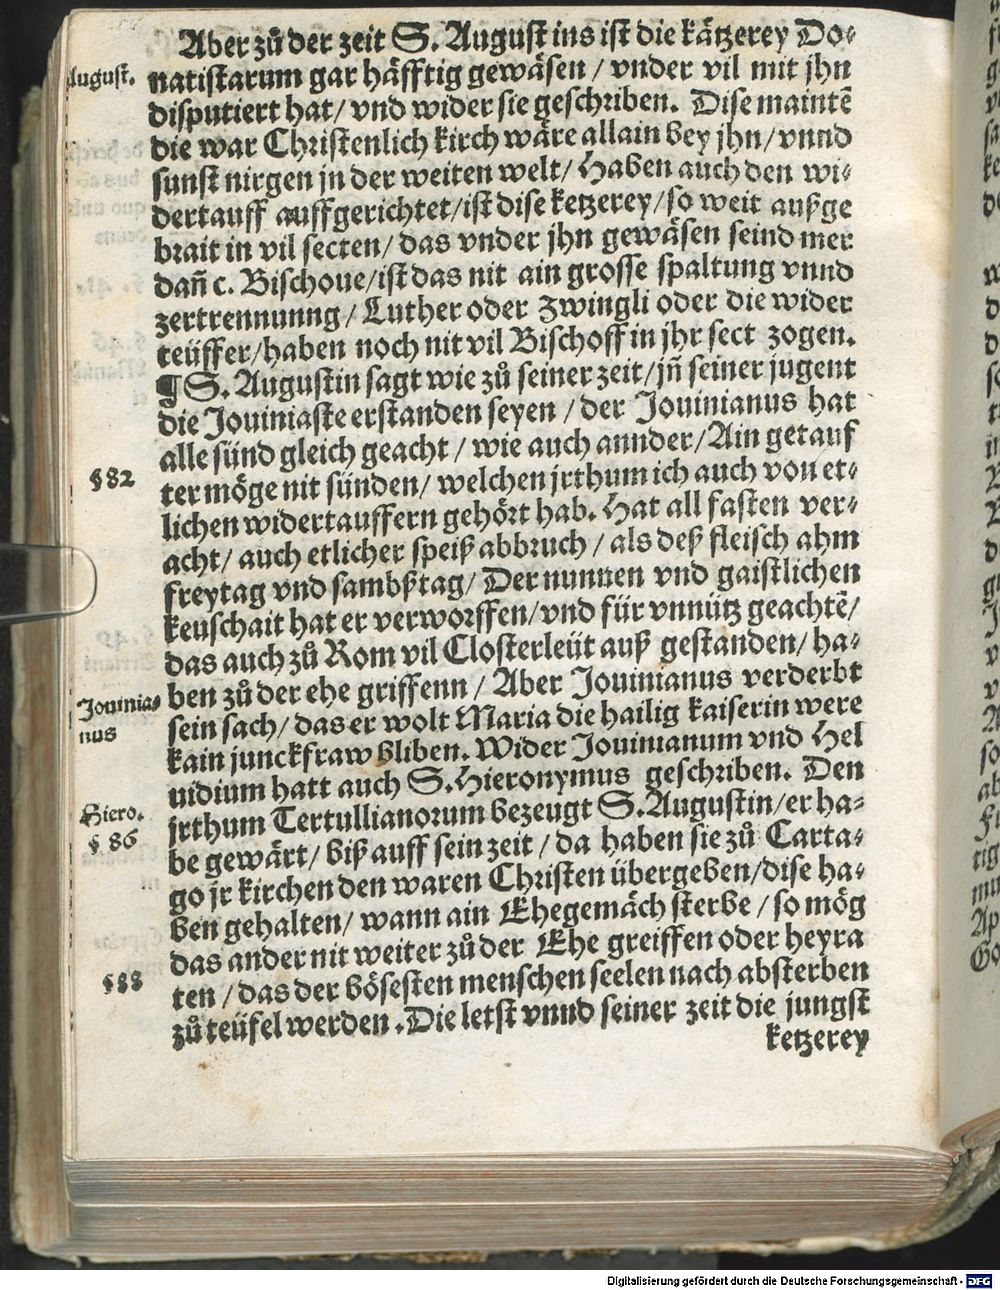 Aber zů der zeit S. Augustins ist die kätzerey Do⸗
August.
natistarum gar häfftig gewäsen / vnder vil mit jhn
disputiert hat / vnd wider sie geschriben. Dise maintẽ
die war Christenlich kirch wäre allain bey jhn / vnnd
sunst nirgen jn der weiten welt / Haben auch den wi⸗
dertauff auffgerichtet / ist dise ketzerey / so weit außge
brait in vil secten / das vnder jhn gewäsen seind mer
dañ c. Bischoue / ist das nit ain grosse spaltung vnnd
zertrennunng / Luther oder Zwingli oder die wider
teüffer / haben noch nit vil Bischoff in jhr sect zogen.
¶ S. Augustin sagt wie zů seiner zeit / jñ seiner jugent
die Jouiniaste erstanden seyen / der Jouinianus hat
alle sünd gleich geacht / wie auch annder / Ain getauf
§ 82
ter möge nit sünden / welchen jrthum ich auch von et⸗
lichen widertauffern gehört hab. Hat all fasten ver⸗
acht / auch etlicher speiß abbruch / als deß fleisch ahm
freytag vnd sambßtag / Der nunnen vnd gaistlichen
keuschait hat er verworffen / vnd für vnnütz geachtẽ /
das auch zů Rom vil Closterleüt auß gestanden / ha⸗
ben zů der ehe griffenn / Aber Jouinianus verderbt
Jouinia⸗
nus
sein sach / das er wolt Maria die hailig kaiserin were
kain junckfraw bliben. Wider Jouinianum vnd Hel
uidium hatt auch S. Hieronymus geschriben. Den
Hiero.
§ 86
jrthum Tertullianorum bezeugt S. Augustin / er ha⸗
be gewärt / biß auff sein zeit / da haben sie zů Carta⸗
go jr kirchen den waren Christen übergeben / dise ha⸗
ben gehalten / wann ain Ehegemäch sterbe / so mög
das ander nit weiter zů der Ehe greiffen oder heyra
§ 88
ten / das der bösesten menschen seelen nach absterben
zů teüfel werden. Die letst vnnd seiner zeit die jungst
ketzerey
Digitalisierung gefördert durch die Deutsche Forschungsgemeinschaft - DFG